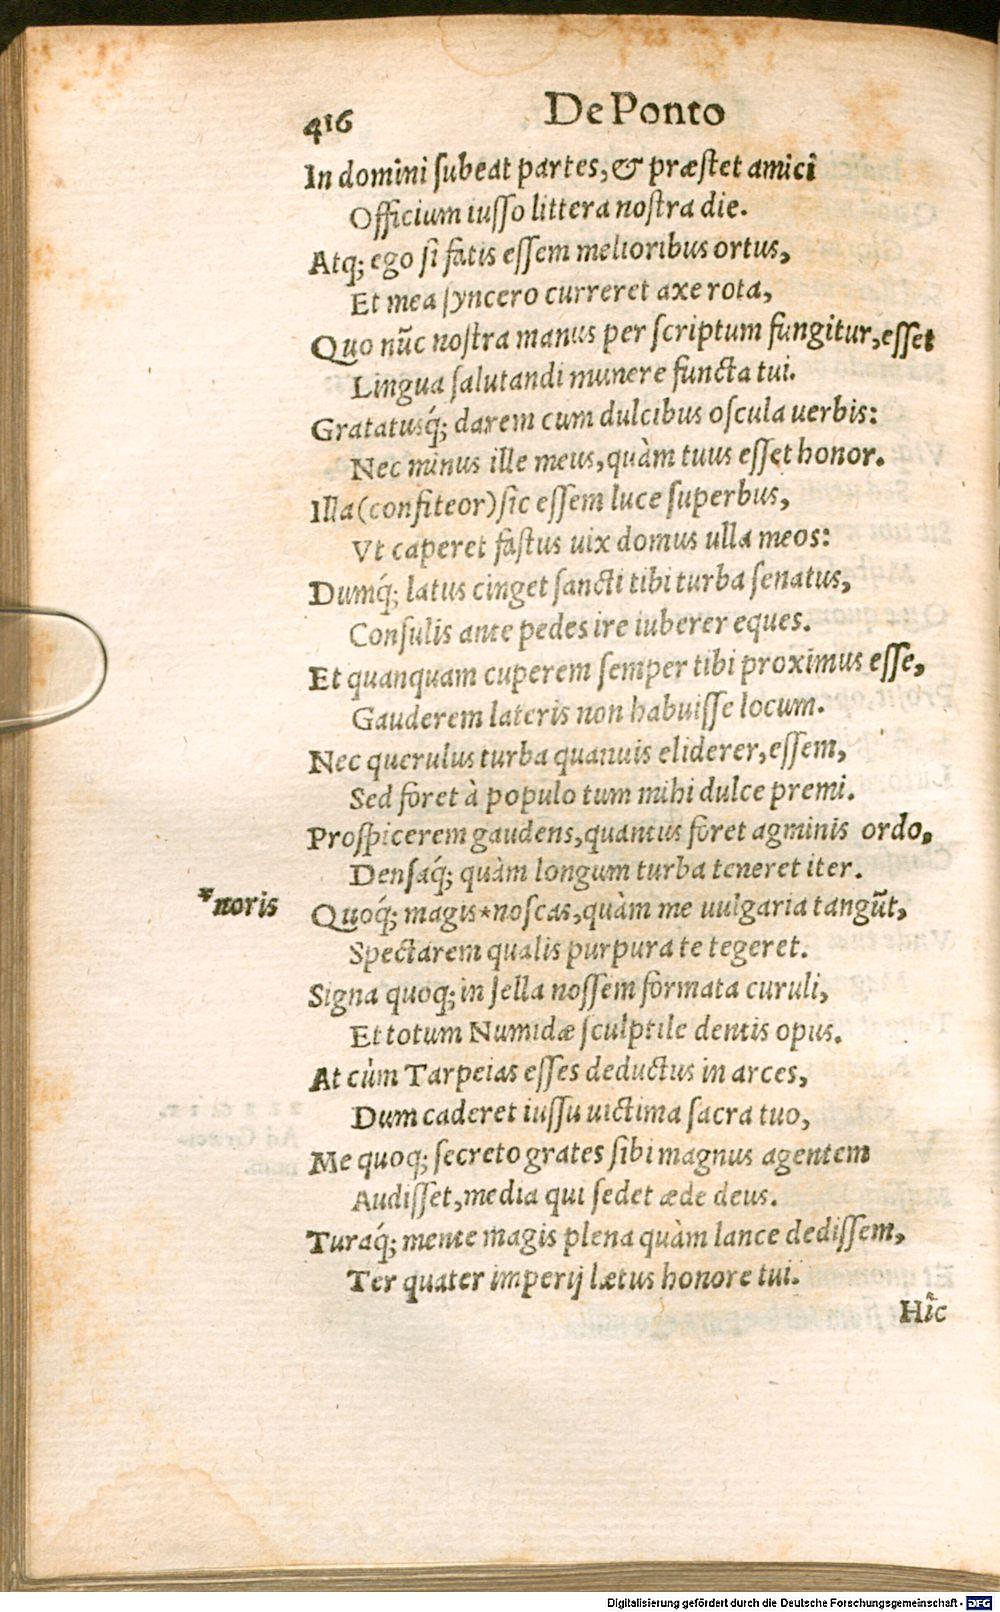 416 De Ponto
In domini subeat partes, & præstet amici
Officium iusso littera nostra die.
Atq; ego si fatis essem melioribus ortus,
Et mea syncero curreret axe rota,
Quo nũc nostra manus per scriptum fungitur, esset
Lingua salutandi munere functa tui.
Gratatusq́; darem cum dulcibus oscula uerbis:
Nec minus ille meus, quàm tuus esset honor.
Illa (confiteor) sic essem luce superbus,
Vt caperet fastus uix domus ulla meos:
Dumq́; latus cinget sancti tibi turba senatus,
Consulis ante pedes ire iuberer eques.
Et quanquam cuperem semper tibi proximus esse,
Gauderem lateris non habuisse locum.
Nec querulus turba quanuis eliderer, essem,
Sed foret à populo tum mihi dulce premi.
Prospicerem gaudens, quantus foret agminis ordo,
Densaq́; quàm longum turba teneret iter.
*noris Quoq́; magis*noscas, quàm me uulgaria tangũt,
Spectarem qualis purpura te tegeret.
Signa quoq; in sella nossem formata curuli,
Et totum Numidæ sculptile dentis opus.
At cùm Tarpeias esses deductus in arces,
Dum caderet iussu uictima sacra tuo,
Me quoq; secreto grates sibi magnus agentem
Audisset, media qui sedet æde deus.
Turaq́; mente magis plena quàm lance dedissem,
Ter quater imperij lætus honore tui.
Hîc
Digitalisierung gefördert durch die Deutsche Forschungsgemeinschaft - DFG